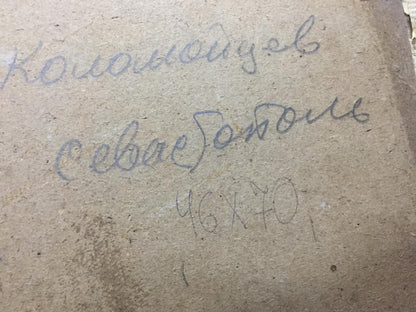 Коломойцев
Севастополь
46х70